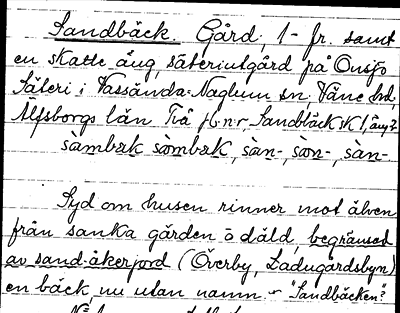 Sandbäck. Gård, 1- fr. samt
en skatte äng, säteriutgård på Onsjö
Säteri i Vassända-Naglum sn, Väne hd,
Älfsborgs län Två j.b.n.r, Sandbäck sk 1, äng 2
sàmbæk sòmbæk, sàn-, sòn-, sàn-
Syd om husen rinner mot älven
från sanka gärden ö däld, begränsad
av sand-åkerjord (Överby, Ladugårdsbyn)
en bäck, nu utan namn. - "Sandbäcken"?